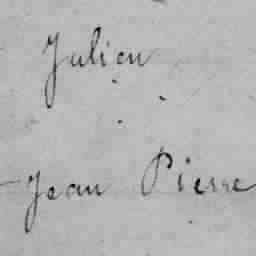 Julien
Jean Pierre